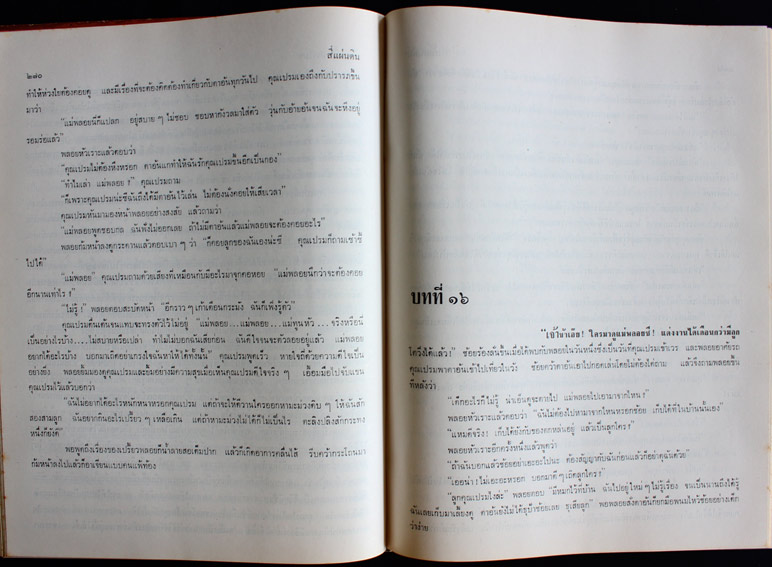 สี่แผ่นดิน
๒๘๐
ทำให้ห่วงใยต้องคอยดู และมีเรื่องที่จะต้องคิดต้องทำเกี่ยวกับตาอั้นทุกวันไป คุณเปรมเองถึงกับปรารภขึ้น
มาว่า
"แม่พลอยนี่ก็แปลก อยู่สบาย ๆ ไม่ชอบ ชอบหากังวลมาใส่ตัว วุ่นกับอ้ายอั้นจนฉันจะหึงอยู่
รอมร่อแล้ว"
พลอยหัวเราะแล้วตอบว่า
"คุณเปรมไม่ต้องหึงหรอก ตาอั้นแกทำให้ฉันรักคุณเปรมขึ้นอีกเป็นกอง"
"ทำไมเล่า แม่พลอย ?" คุณเปรมถาม
"ก็เพราะคุณเปรมน่ะซีฉันถึงได้มีตาอั้นไว้เล่น ไม่ต้องนั่งคอยให้เสียเวลา"
คุณเปรมหันมามองหน้าพลอยอย่างสงสัย แล้วถามว่า
"แม่พลอยพูดชอบกล ฉันฟังไม่ออกเลย ถ้าไม่มีตาอั้นแล้วแม่พลอยจะต้องคอยอะไร"
พลอยก้มหน้าลงดูกระดานแล้วตอบเบา ๆ ว่า "ก็คอยลูกของฉันเองน่ะซี คุณเปรมก็ถามเซ้าซี้
ไปได้"
"แม่พลอย" คุณเปรมถามด้วยเสียงที่เหมือนกับมีอะไรมาจุกคอหอย "แม่พลอยนึกว่าจะต้องคอย
อีกนานเท่าไร ?"
"ไม่รู้ !" พลอยตอบสะบัดหน้า "อีกราว ๆ เก้าเดือนกระมัง ฉันก็เพิ่งรู้ตัว"
คุณเปรมตื่นเต้นจนแทบจะทรงตัวไว้ไม่อยู่ "แม่พลอย...แม่พลอย...แม่ทูนหัว...จริงหรือนี่
เป็นอย่างไรบ้าง...ไม่สบายหรือเปล่า ทำไมไม่บอกฉันเสียก่อน ฉันดีใจจนจะตัวลอยอยู่แล้ว แม่พลอย
อยากได้อะไรบ้าง บอกมาเถิดอย่าเกรงใจฉันหาให้ได้ทั้งนั้น" คุณเปรมพูดเร็ว หายใจถี่ด้วยความดีใจเป็น
อย่างยิ่ง พลอยยิ้มมองดูคุณเปรมและยิ้มอย่างมีความสุขเมื่อเห็นคุณเปรมดีใจจริง ๆ เอื้อมมือไปจับแขน
คุณเปรมไว้แล้วบอกว่า
"ฉันไม่อยากได้อะไรหนักหนาหรอกคุณเปรม แต่ถ้าจะให้ดีวานใครออกหามะม่วงดิบ ๆ ให้ฉันสัก
สองสามลูก ฉันอยากกินอะไรเปรี้ยว ๆ เหลือเกิน แต่ถ้าหามะม่วงไม่ได้ก็ไม่เป็นไร ตะลิงปลิงสักกระทง
หนึ่งก็ยังดี"
พอพูดถึงเรื่องของเปรี้ยวพลอยก็น้ำลายสอเต็มปาก แล้วก็เกิดอาการคลื่นไส้ รีบคว้ากระโถนมา
ก้มหน้าลงไปแล้วก็อาเจียนแบบคนแพ้ท้อง
บทที่ ๑๖
"เจ้าไหนเอ๊ย! ใครมาดูแม่พลอยซี ! แต่งงานได้เดือนกว่ามีลูก
โตวิ่งได้แล้ว!" ช้อยร้องลั่นขึ้นเมื่อได้พบกับพลอยในวันหนึ่งซึ่งเป็นวันที่คุณเปรมเข้าเวร และพลอยขออาศัยรถ
คุณเปรมพาตาอั้นเข้าไปเที่ยวในวัง ช้อยคว้าตาอั้นเอาไปกอดเล่นโดยไม่ต้องได้ถาม แล้วจึงถามพลอยขึ้น
ทีหลังว่า
"เด็กอะไรก็ไม่รู้ น่าเอ็นดูจะตายไป แม่พลอยไปเอามาจากไหน?"
พลอยหัวเราะแล้วตอบว่า "ฉันไม่ต้องไปหามาจากไหนหรอกช้อย เก็บได้ที่ในบ้านนั้นเอง"
"แหมดีจริง! เก็บได้ยังกับของตกหล่นอยู่ แล้วเป็นลูกใคร?"
พลอยหัวเราะอีกครั้งหนึ่งแล้วพูดว่า
"ถ้าฉันบอกแล้วช้อยอย่าเอะอะไปนะ ต้องสัญญากับฉันก่อนแล้วก็อย่าดุฉันด้วย"
"เอยน่า ! ไม่เอะอะหรอก บอกมาดี ๆ เถิดลูกใคร?"
"ลูกคุณเปรมไงล่ะ" พลอยตอบ "มีหมกไว้ที่บ้าน ฉันไปอยู่ใหม่ ๆ ไม่รู้เรื่อง จนเป็นนานถึงได้รู้
ฉันเลยเก็บมาเลี้ยงดู ตาอั้นยังไม่ได้ธุป้าช้อยเลย ธุเสียลูก" พอพลอยสั่งตาอั้นก็ยกมือพนมไหว้ช้อยอย่างเด็ก
ว่าง่าย